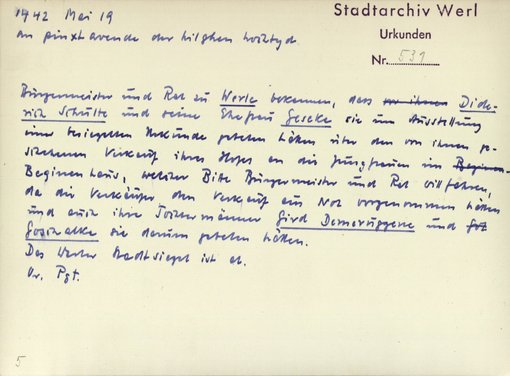 1442 Mai 19
an pinxtavende der hilghen hochtyd.
Stadtarchiv Werl
Urkunden
Nr. 531
Bürgermeister und Rat zu Werle bekennen, dass vor ihnen Dide-
rich Schulte und seine Ehefrau Geseke sie um Ausstellung
einer besiegelten Urkunde gebeten hätten über den von ihnen ge-
schehenen Verkauf ihres Hofes an die Jungfrauen im Beginen-
Beginenhaus, welcher Bitte Bürgermeister und Rat willfahren,
da die Verkäufer den Verkauf aus Not vorgenommen hätten
und auch ihre Tochtermänner Gird und
Goschalke sie darum gebeten hätten.
Das Werler Stadtsiegel ist ab.
Or. Pgt.
5